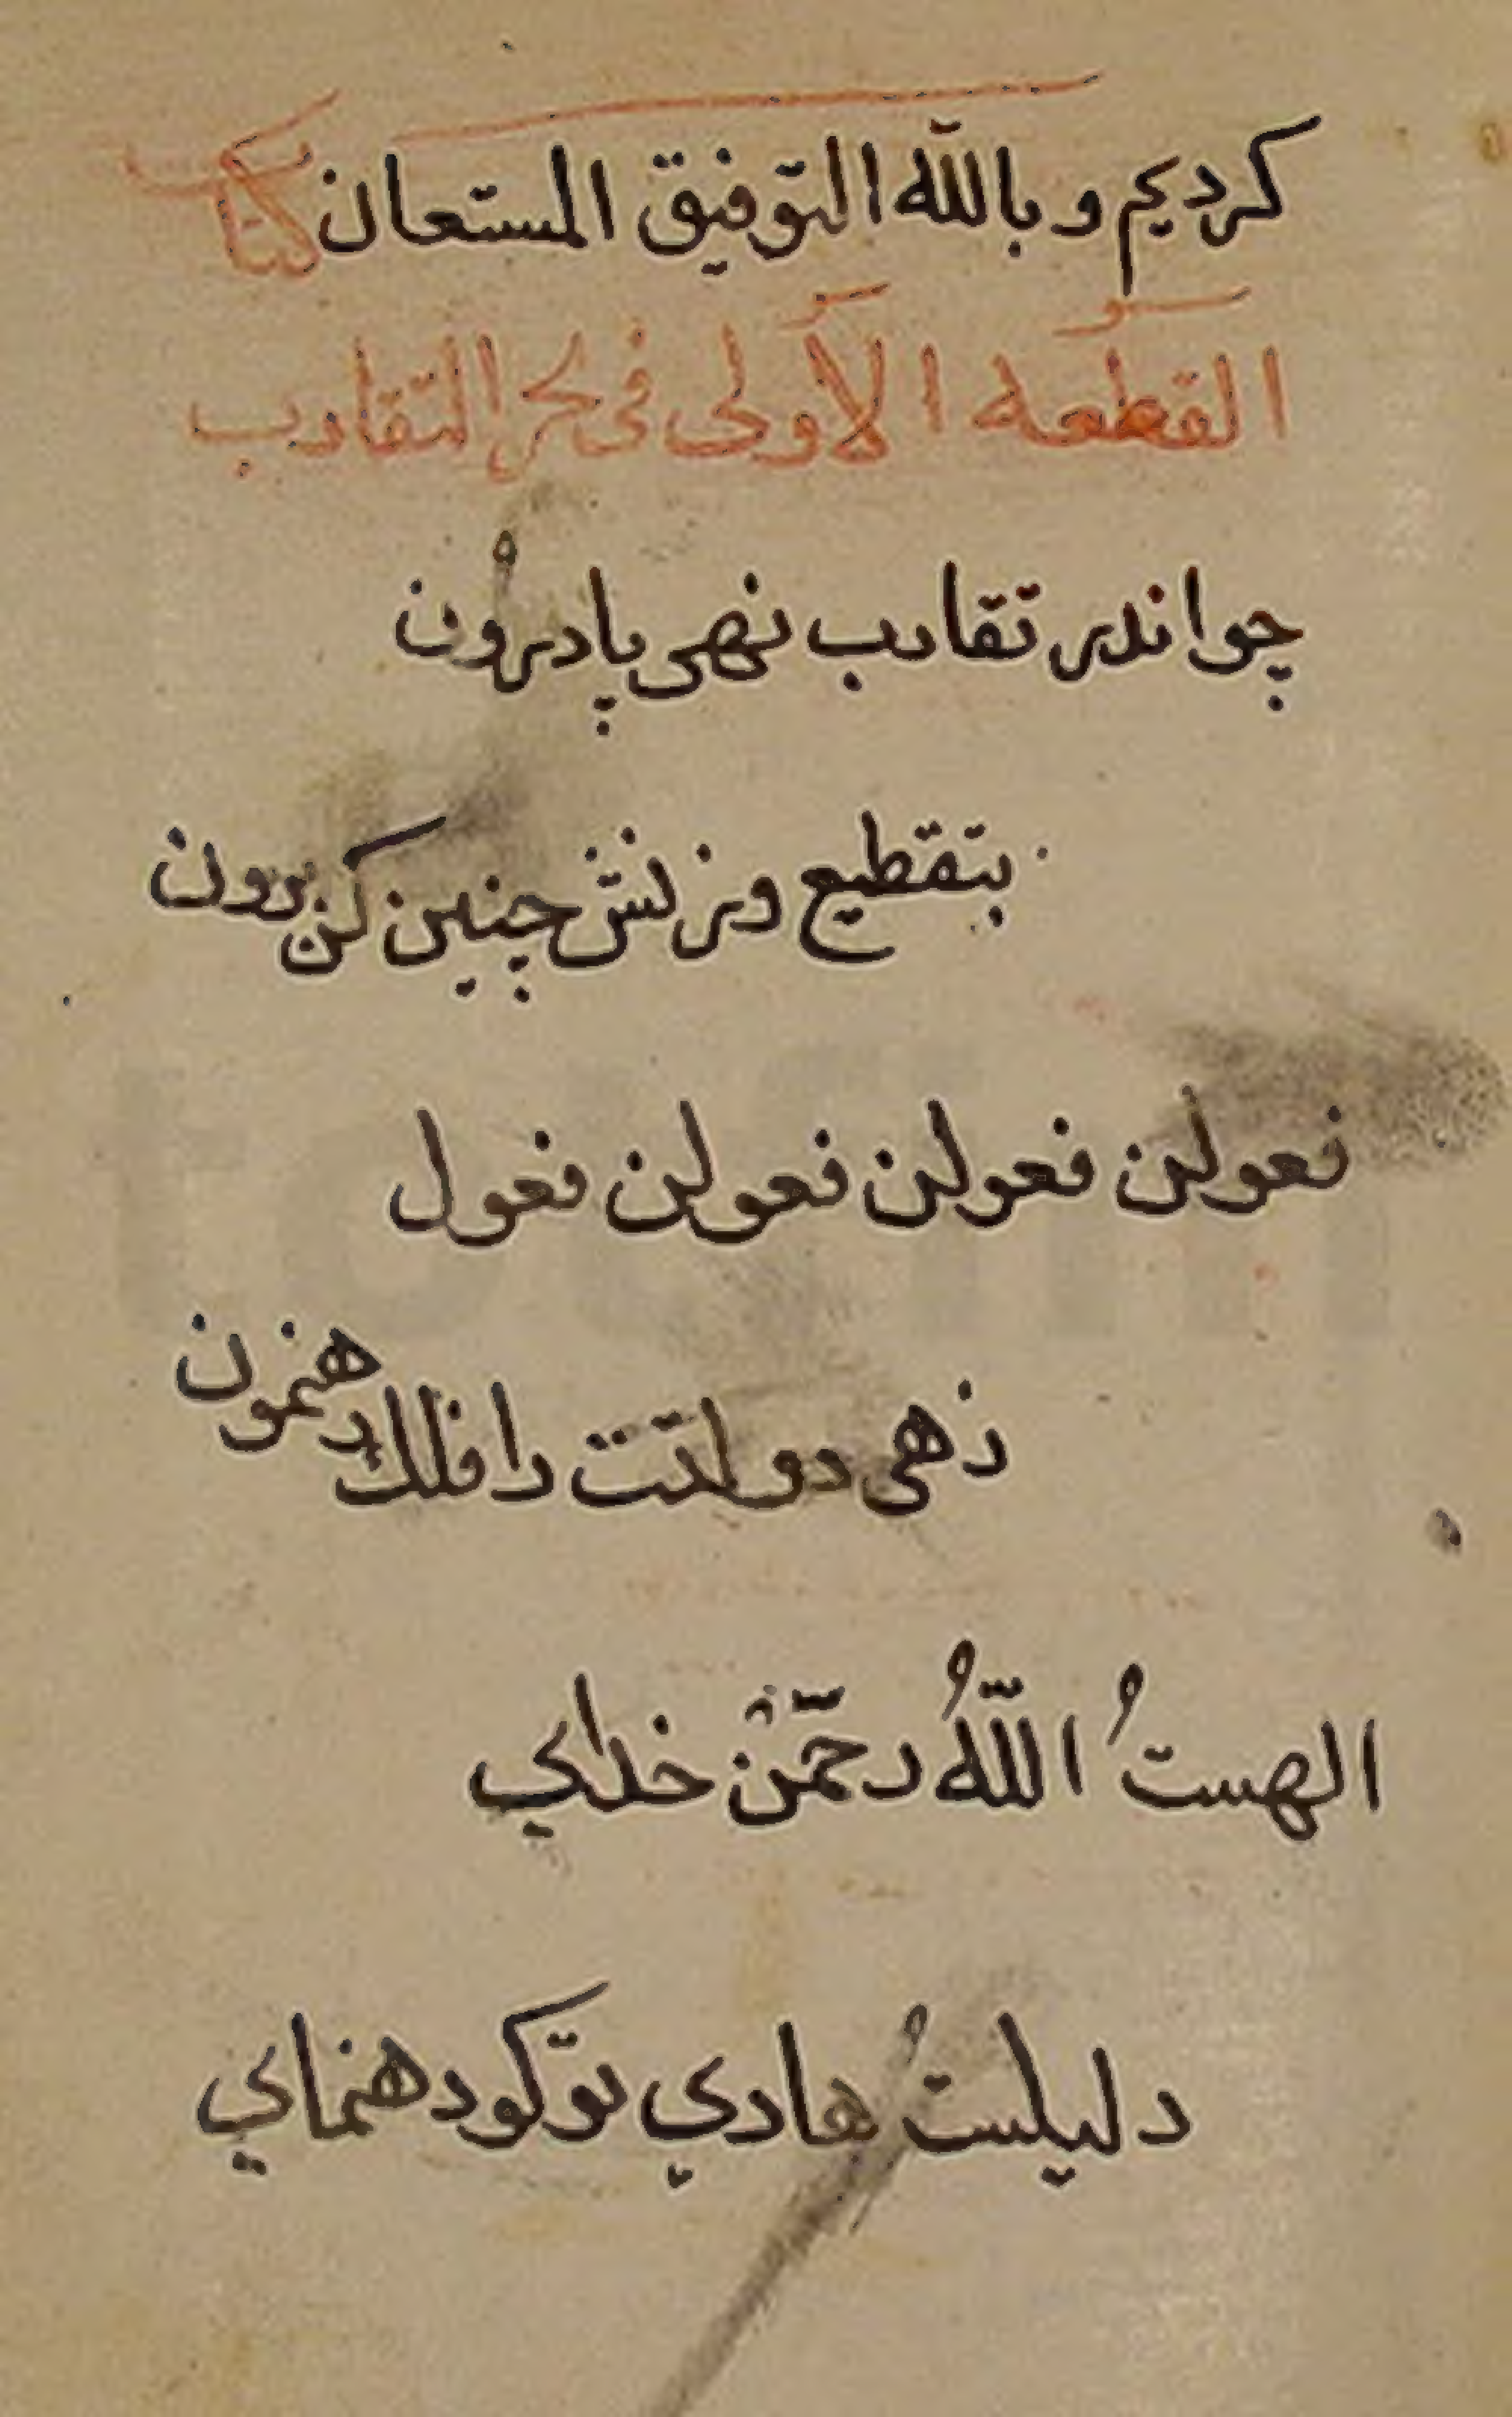 كرديم و بالله التوفيق المستعان كتاب
القطعة الأولى في بحر التقارب
چو اندر تقارب نهى پا درون
بتقطيع وزنش چنين كن برون
فعولن فعولن فعولن فعول
زهى دولتت را فلك رهنمون
الهستُ اللّٰهُ رحمّنْ خداي
دليلستُ هادي تو كو رهنماي